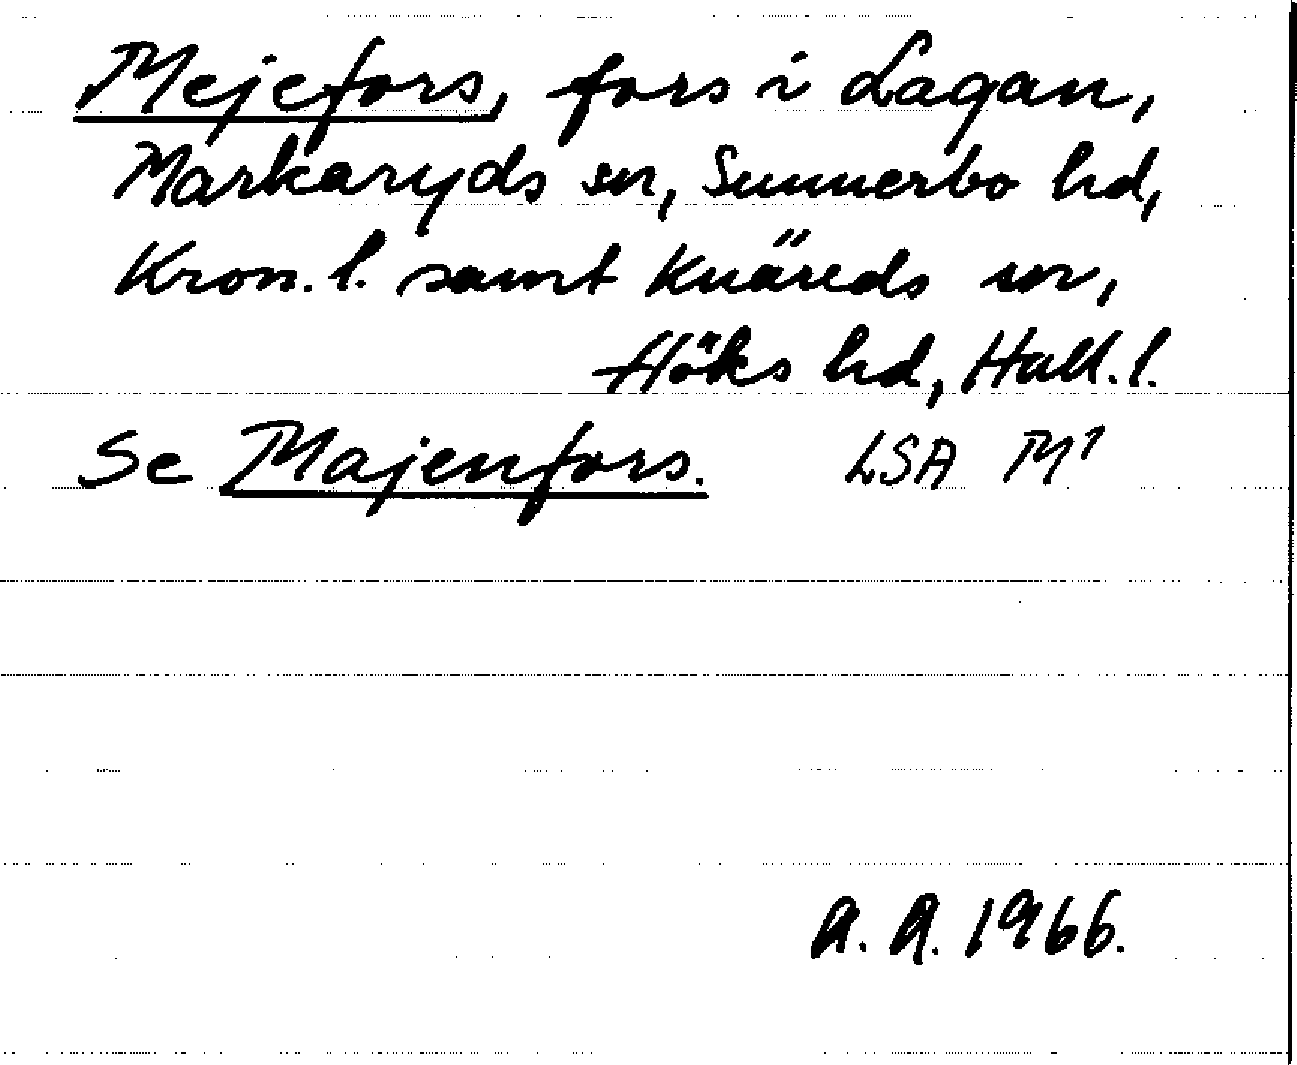 Mejefors, fors i Lagan,
Markaryds sn, Sunnerbo hd,
Kron. l. samt Knäreds sn,
Höks hd, Hall. l.
Se Majenfors. LSA M¹
A. A. 1966.